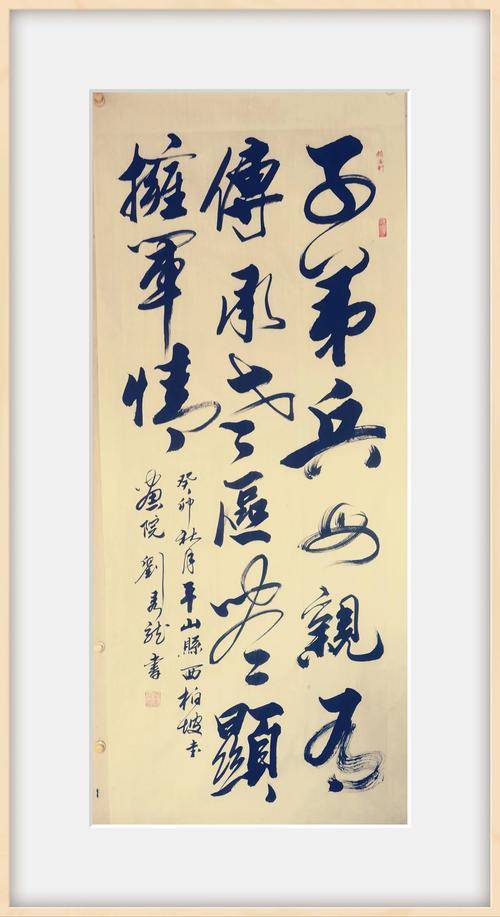 子弟兵母親有
傳承老區處處顯
擁軍情
癸卯秋月平山縣西柏坡書
畫院劉秀龍書